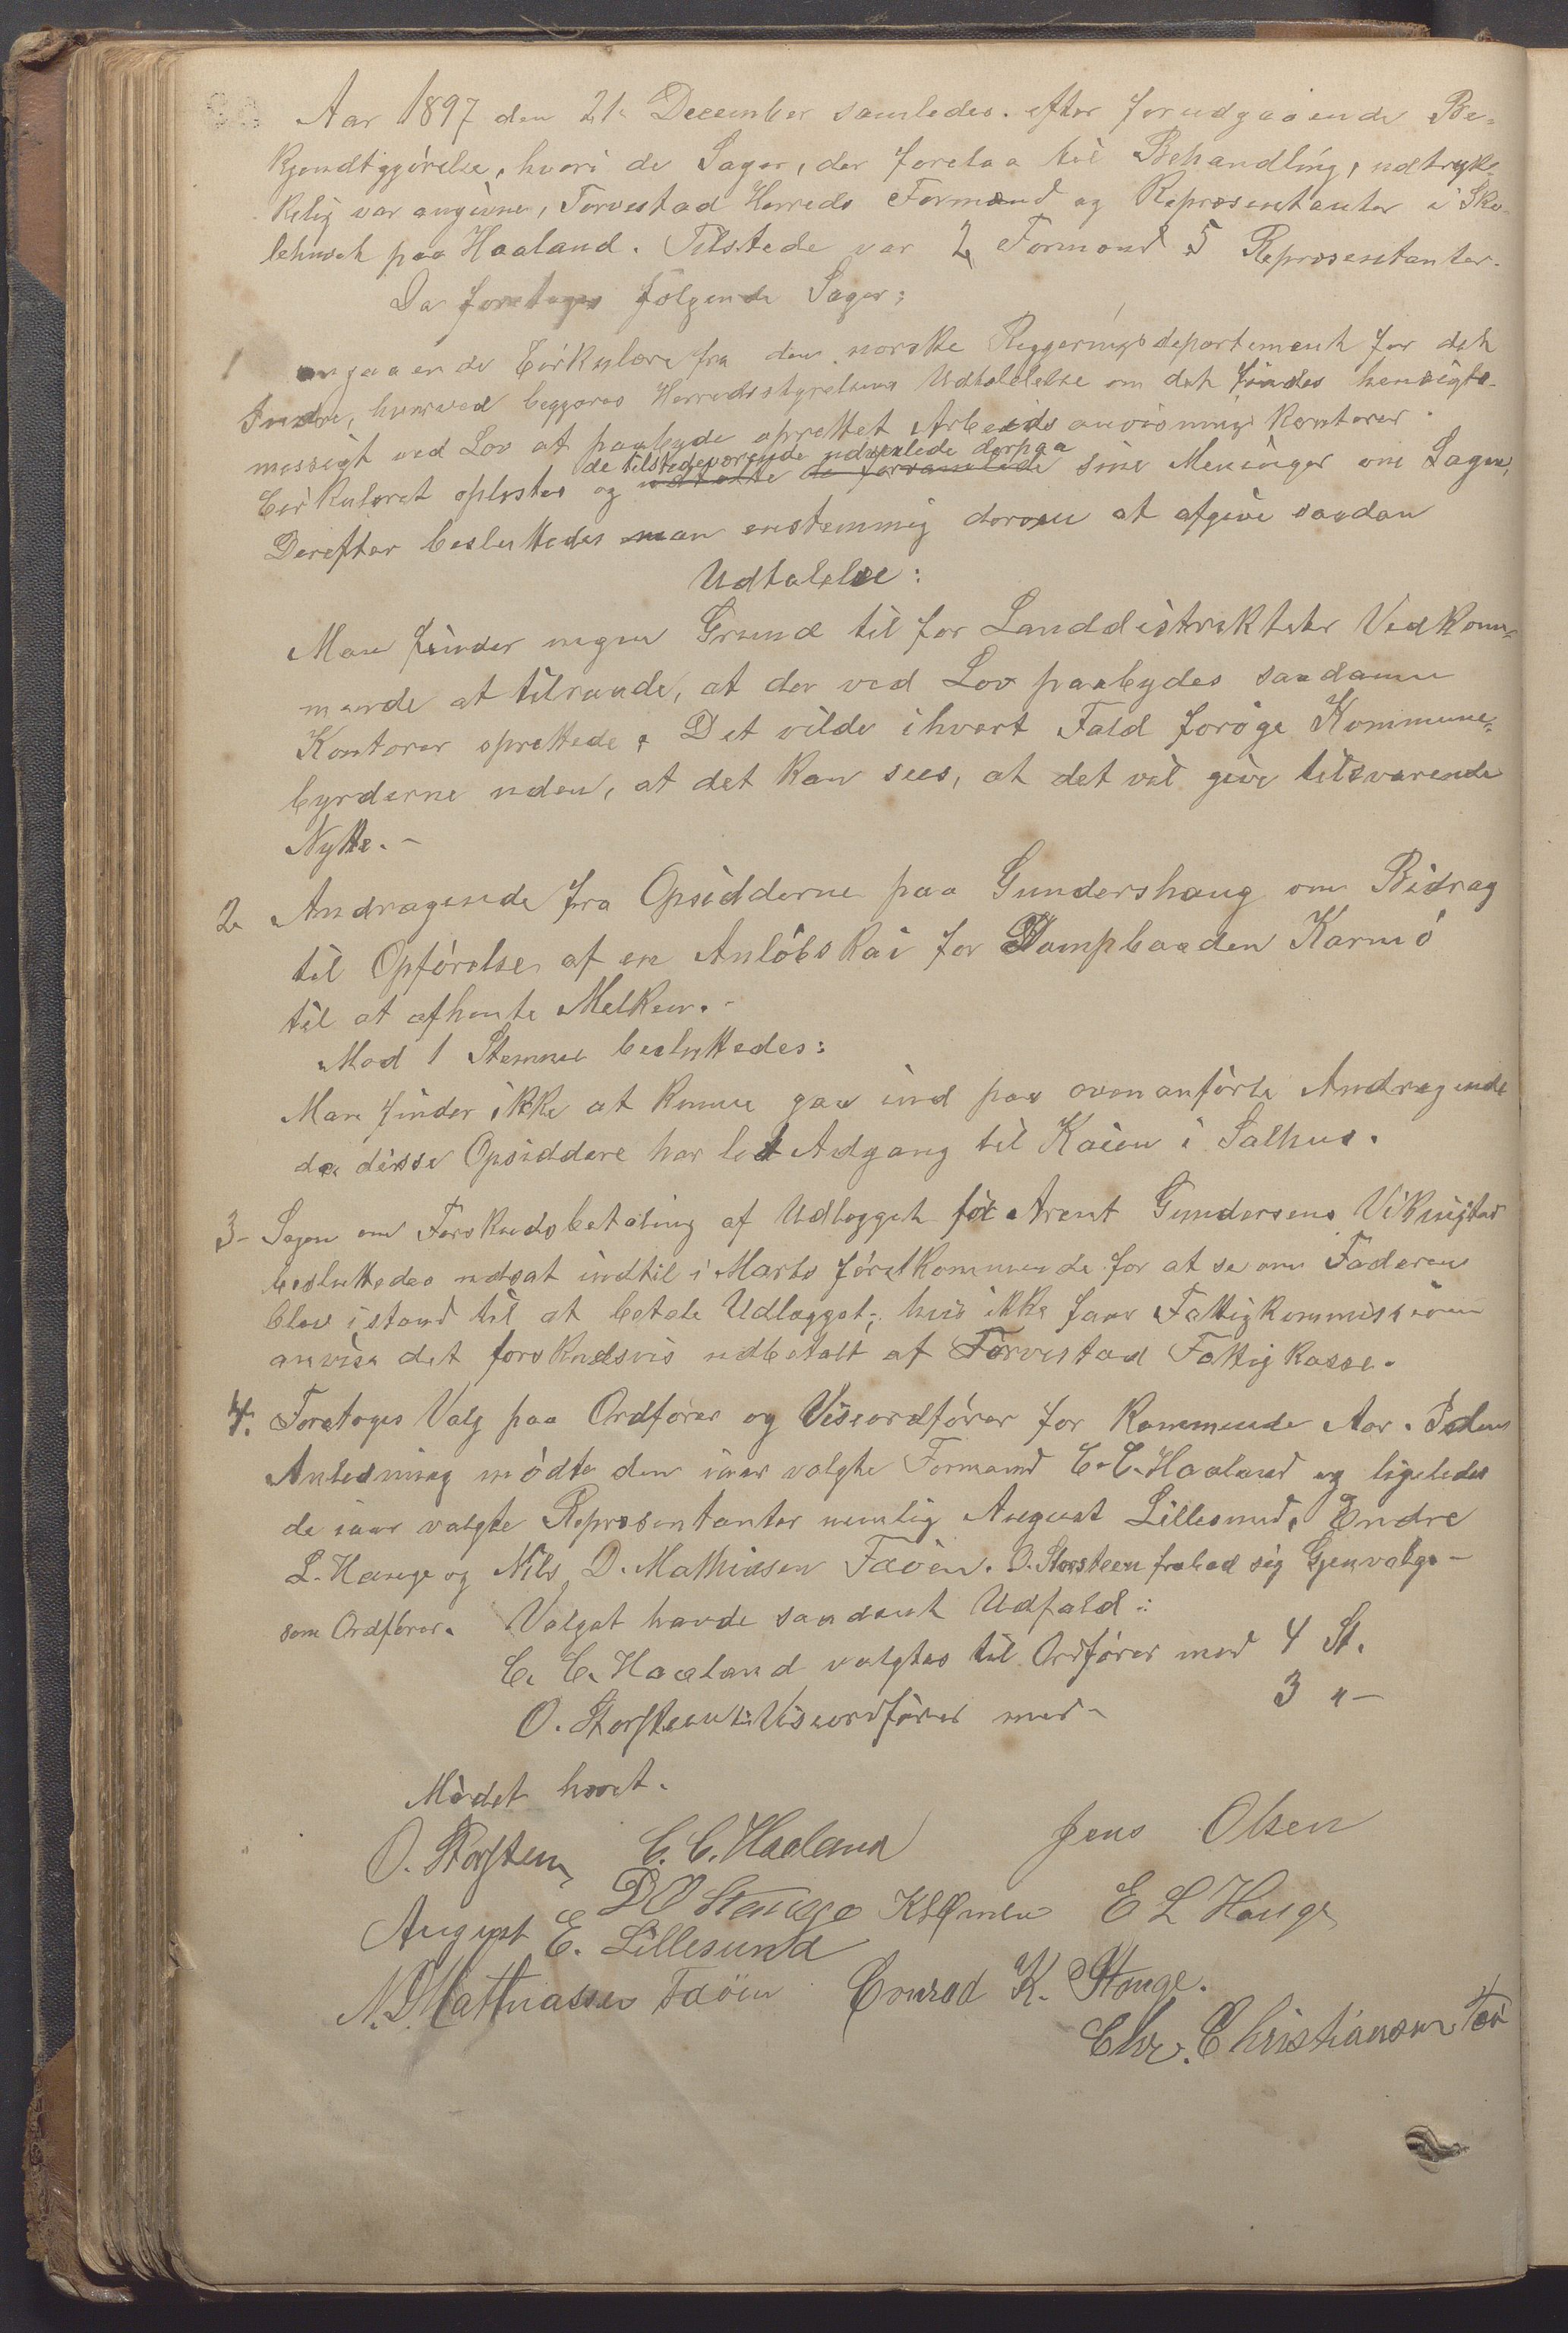 Aar 1897 den 21 December samledes efter forudgaaende Be-
kjendtggjörelse, hvori de Sager, der forelaa til Behandling, udtryk-
kelig var angivne, Torvestad Herreds Formænd og Repræsentanter i Sko-
lehuset paa Haaland. Tilstede var 2 Formænd 5 Repræsentanter.
Da foretoges følgende Sager:
1 angaaende Cirkulære fra den norske Reggeringsdepartement for det
Indre, hvorved beggæres Herredsstyrelsens Udtalelelse om det findes hensigts-
mæssigt ved Lov at paabyde oprettet Arbeidsanvisnings Kontorer.
de tilstedeværende udvexlede derpaa
Cirkulæret oplæstes og udtalte de forsamlede sine Meninger om Sagen,
Derefter besluttedes man enstemmig at afgive saadan
Udtalelse:
Man finder ingen Grund til for Landdistrikteter Vedkom-
mende at tilraade, at der ved Lov paabydes saadanne
Kontorer oprettede. Det vilde ihvert Fald foröge Kommune-
byrderne uden, at det kan sees, at det vil give tilsvarende
Nytte. -
2 Andragende fra Opsidderne paa Gundershaug om Bidrag
til Opförelse af en Anlöbskai for Dampbaaden Karmö
til at afhente Melken. -
Mod 1 Stemme besluttedes:
Man finder ikke at kunne gaa ind paa ovenanförte Andragende
da disse Opsiddere har let Adgang til Kaien i Salhus.
3- Sagen om Forskudsbetaling af Udlægget for Arent Gundersens Vikingstad
besluttedes udsat indtil i Marts förstkommende for at se om Faderen
blev istand til at betale Udlægget; hvis ikke faar Fattigkommissionen
anvise det forskudsvis udbetalt af Torvestad Fattigkasse.
4. Foretoges Valg paa Ordfører og Viseordförer for kommende Aar. I den
Anledning mödte den iaar valgte Formand C. C. Haaland og ligeledes
de iaar valgte Repræsentanter nemlig August Lillesund, Endre
L. Hauge og Nils D. Mathiasen Fæöen. O. Storsteen frabad sig Gjenvalg -
som Ordförer. Valget havde saadant Udfald:
C. C. Haaland valgtes til Ordförer med 4 St.
O. Storsteen til Viseordförer med - 3 " -
Mödet hævet.
O. Storsteen C. C. Haaland Jens Olsen
D O Stange E L Hauge
August E. Lillesund
N. D. Mathiassen Fæöen Conrad K. Stange.
Chr. Christiansen